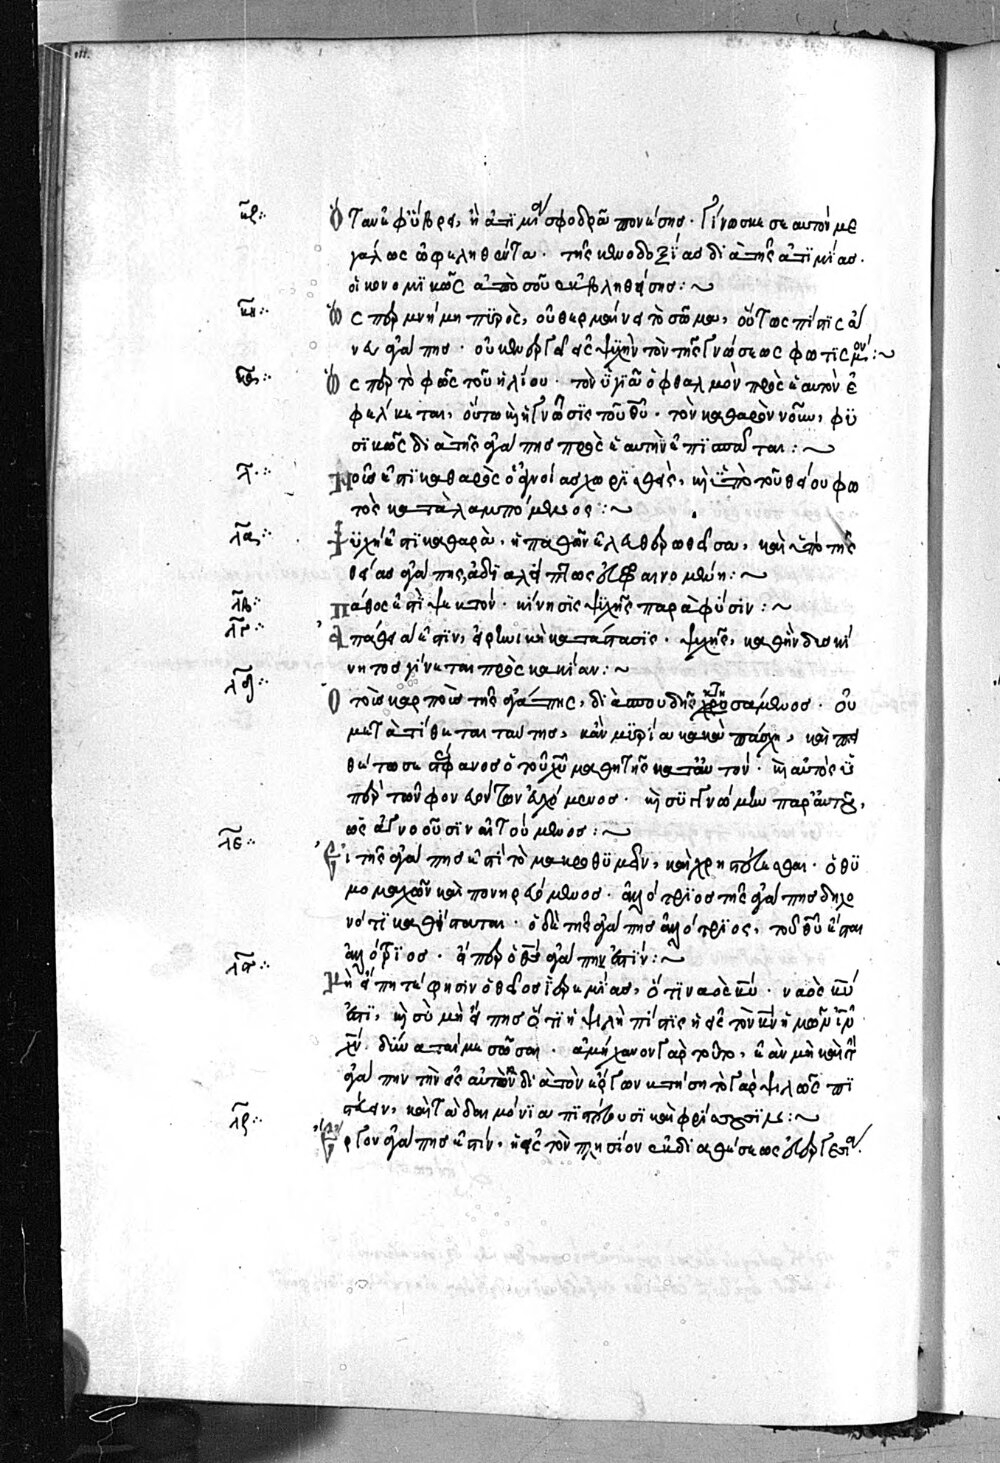 κζ:
Ὅταν ἐφύβρει, ἢ ἀτιμία σφοδρᾶ πονέσης· Γίνωσκε σεαυτὸν με
γάλως ὠφεληθέντα· τῆς κενοδοξίας διὰ τῆς ἀτιμίας·
οἰκονομικῶς ἀπὸ σοῦ ἐκβληθείσης:~
κη:
Ὥσπερ μνήμη πυρὸς, οὐ θερμαίνει τὸ σῶμα, οὕτως πίστις ἄ
νευ ἀγάπης· οὐκ ἐνεργεῖ εἰς ψυχὴν τὸν τῆς Γνώσεως φωτισμόν:~
κθ:
Ὥσπερ τὸ φῶς τοῦ ἡλίου· τὸν ὑγιῆ ὀφθαλμὸν πρὸς ἑαυτὸν ἐ
φέλκεται, οὕτω καὶ ἡ Γνῶσις τοῦ θυ· τὸν καθαρὸν νοῦν, φυ
σικῶς διὰ τῆς ἀγάπης πρὸς ἑαυτὴν ἐπισπᾶται:~
λ:
Νοῦς ἐστι καθαρὸς ὁ ἀγνοίας χωρισθεὶς, καὶ ὑπὸ τοῦ θείου φω
τὸς καταλαμπόμενος:~
λα:
Ψυχή ἐστι καθαρὰ· ἡ παθῶν ἐλευθερωθεῖσα, καὶ ὑπὸ τῆς
θείας ἀγάπης, ἀδιαλείπτως εὐφραινομένη:~
λβ:
Πάθος ἐστὶ ψεκτὸν· κίνησις ψυχῆς παρὰ φύσιν:~
λγ:
Ἀπάθειά ἐστιν, εἰρηνικὴ κατάστασις· ψυχῆς, καθ' ἣν δυσκί
νητος γίνεται πρὸς κακίαν:~
λδ:
Ὁ τοὺς καρποὺς τῆς ἀγάπης, διὰ σπουδῆς κτησάμενος· οὐ
μετατίθεται ταύτης, κἂν μυρία κακὰ πάσχη, καὶ πει
θέτω σε στέφανος ὁ τοῦ χυ μαθητῆς κατ' αὐτόν· καὶ αὐτὸς ὑ
πὲρ τῶν φονευόντων εὐχόμενος· καὶ συγγνώμην παρ' αὐτοῦ,
ὡς ἀγνοοῦσιν αἰτούμενος:~
λε:
Εἰ τῆς ἀγάπης ἐστὶ τὸ μακροθυμεῖν, καὶ χρηστεύεσθαι· ὁ θυ
μομαχῶν καὶ πονηρευόμενος· ἀλλότριος τῆς ἀγάπης δηλο
νότι καθίσταται· ὁ δὲ τῆς ἀγάπης ἀλλότριος, τοῦ θυ ἐστιν
ἀλλότριος· εἴπερ ὁ θς ἀγάπη ἐστίν:~
λϛ:
Μὴ εἴπητε, φησὶν ὁ θεῖος Ἱερεμίας, ὅτι ναὸς κυ· ναὸς κυ
ἐστι, καὶ σὺ μὴ εἴπης ὅτι ἡ ψιλὴ πίστις ἡ εἰς τὸν κν ἡμῶν ιν
χν δύναταί με σῶσαι· ἀμήχανον Γὰρ τοῦτο, ἐὰν μὴ καὶ τὴν
ἀγάπην τὴν εἰς αὐτὸν διὰ τῶν ἔργων κτήση τὸ Γὰρ ψιλῶς πι
στεύειν, καὶ τὰ δαιμόνια πιστεύουσι καὶ φρίσσουσι:~
λζ:
Ἔργον ἀγάπης ἐστὶν, ἡ εἰς τὸν πλησίον ἐκ διαθέσεως εὐεργεσία.